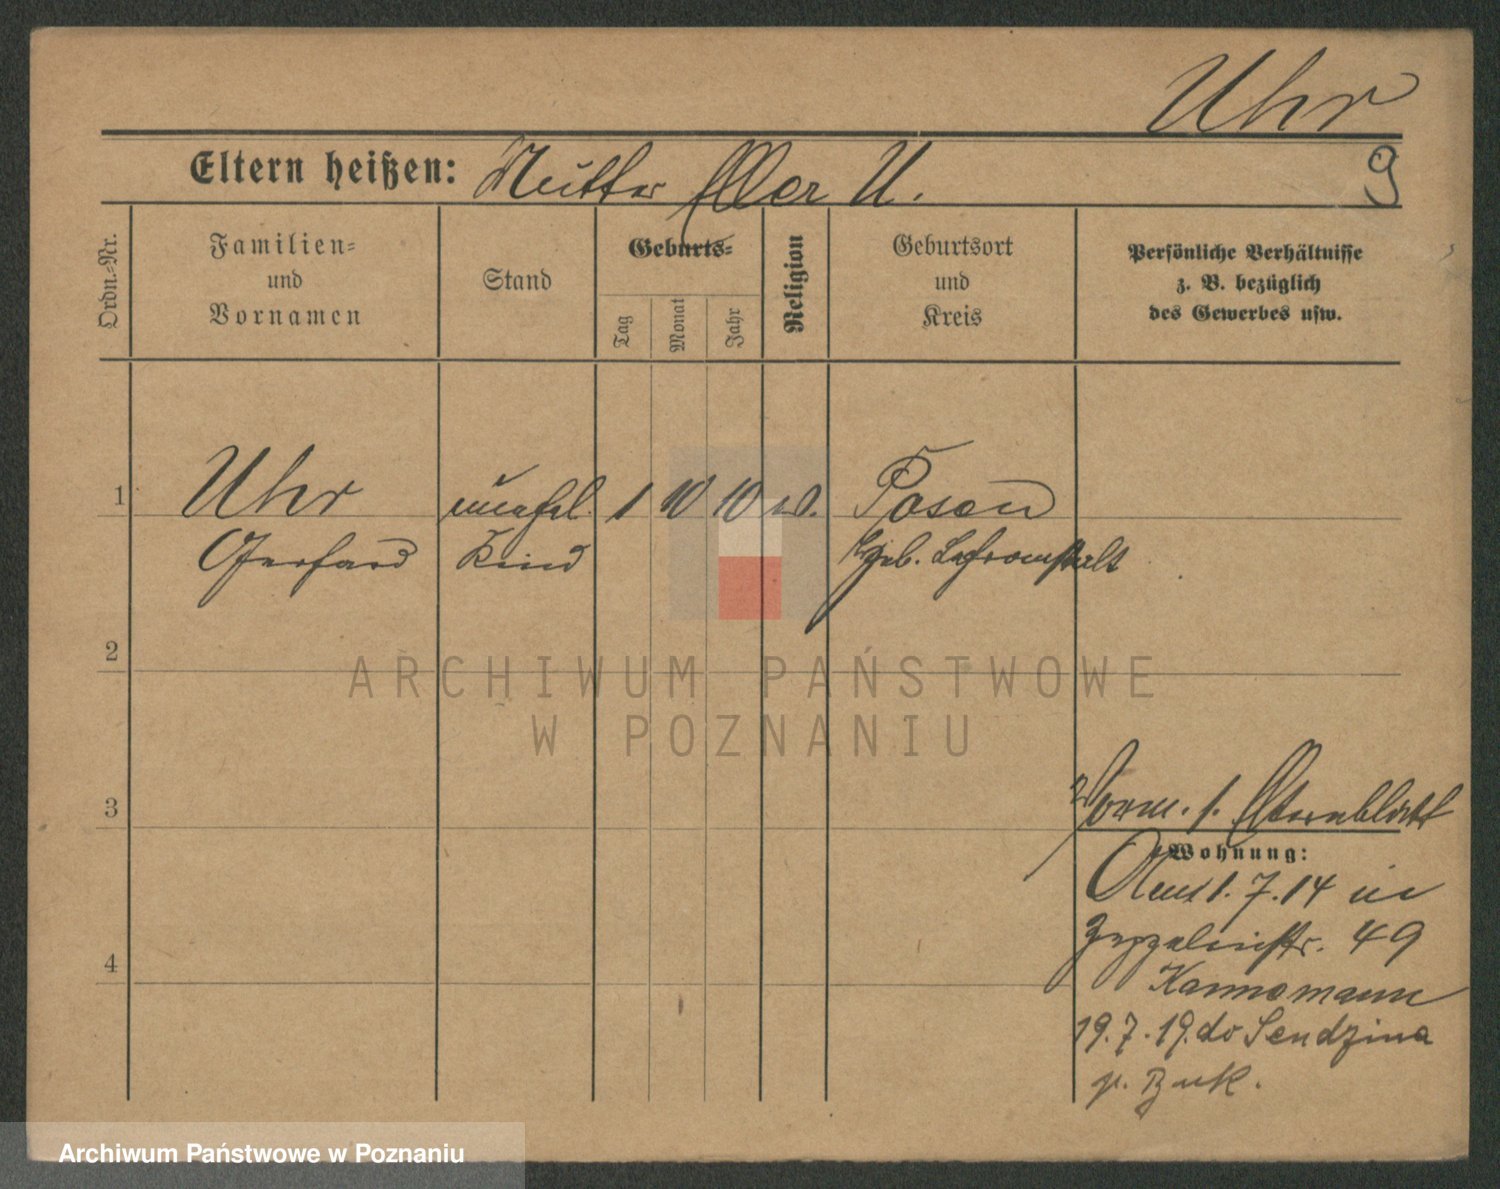 Uhr
Eltern heißen: Mutter Elle U.
9
Ordn.=Nr.
Familien=
und
Vornamen
Stand
Geburts=
Tag
Monat
Jahr
Religion
Geburtsort
und
Kreis
Persönliche Verhältnisse
z. B. bezüglich
des Gewerbes usw.
1
Uhr
Gerhard
unehel.
Kind
1 10 10
Posen
2
3
4
Vorm. s. Elternblatt
Wohnung:
1.7.14 in
Zeppelinstr. 49
19.7.19. do Sendzina
p. Buk.
ARCHIWUM PAŃSTWOWE
W POZNANIU
Archiwum Państwowe w Poznaniu